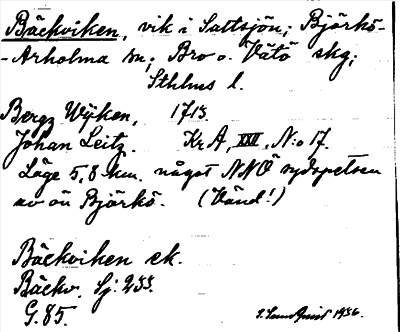 Bäckviken, vik i Saltsjön; Björkö-
-Arholma sn; Bro o. Vätö skg;
Sthlms l.
Bergz Wijken, 1713.
Johan Leitz. Kr A, XXII, N:o 17.
Läge 5,8 km. något NNO sydspetsen
av ön Björkö. (Vänd!)
Bäckviken ek.
Bäckv. Sj: 933.
G. 85. 1936.